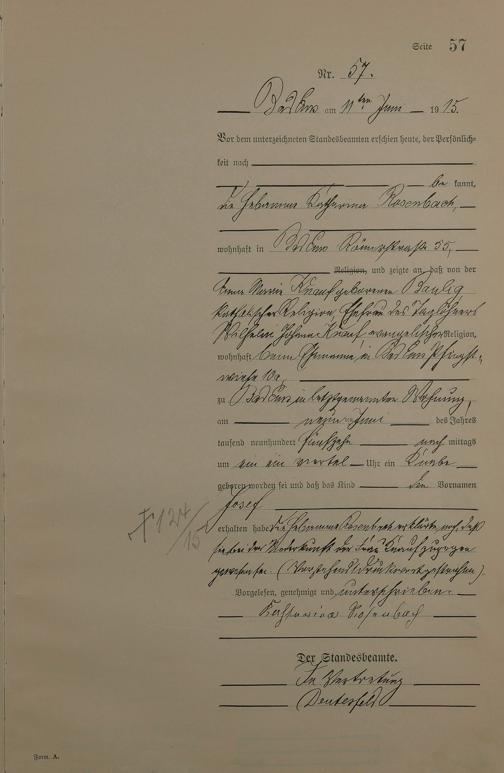 Seite 57
Nr. 57.
Bad Ems am 11ten Juni 1915.
Vor dem unterzeichneten Standesbeamten erschien heute, der Persönlich-
keit nach
be kannt,
die Hebamme Katharina Rosenbach,
wohnhaft in Bad Ems Römerstraße 35,
Religion, und zeigte an, daß von der
Anna Maria Knauf geborenen Paulig
katholischer Religion, Ehefrau des Taglöhners
Wilhelm Knauf evangelischer Religion,
wohnhaft beim Ehemanne in Bad Ems Pfingst-
wiese
zu Bad Ems in letztgenannter Wohnung,
am neun Juni des Jahres
tausend neunhundert fünfzehn nach mittags
um ein ein viertel Uhr ein Knabe
geboren worden sei und daß das Kind den Vornamen
Josef
erhalten habe. Die Hebamme Rosenbach erklärte noch, daß
sie bei der Niederkunft der Frau Knauf zugegen
gewesen sei. (Vorstehend 1 Druckwort gestrichen).
Vorgelesen, genehmigt und unterschrieben.
Katharina Rosenbach
Der Standesbeamte.
In Vertretung
† 124/15
Form. A.